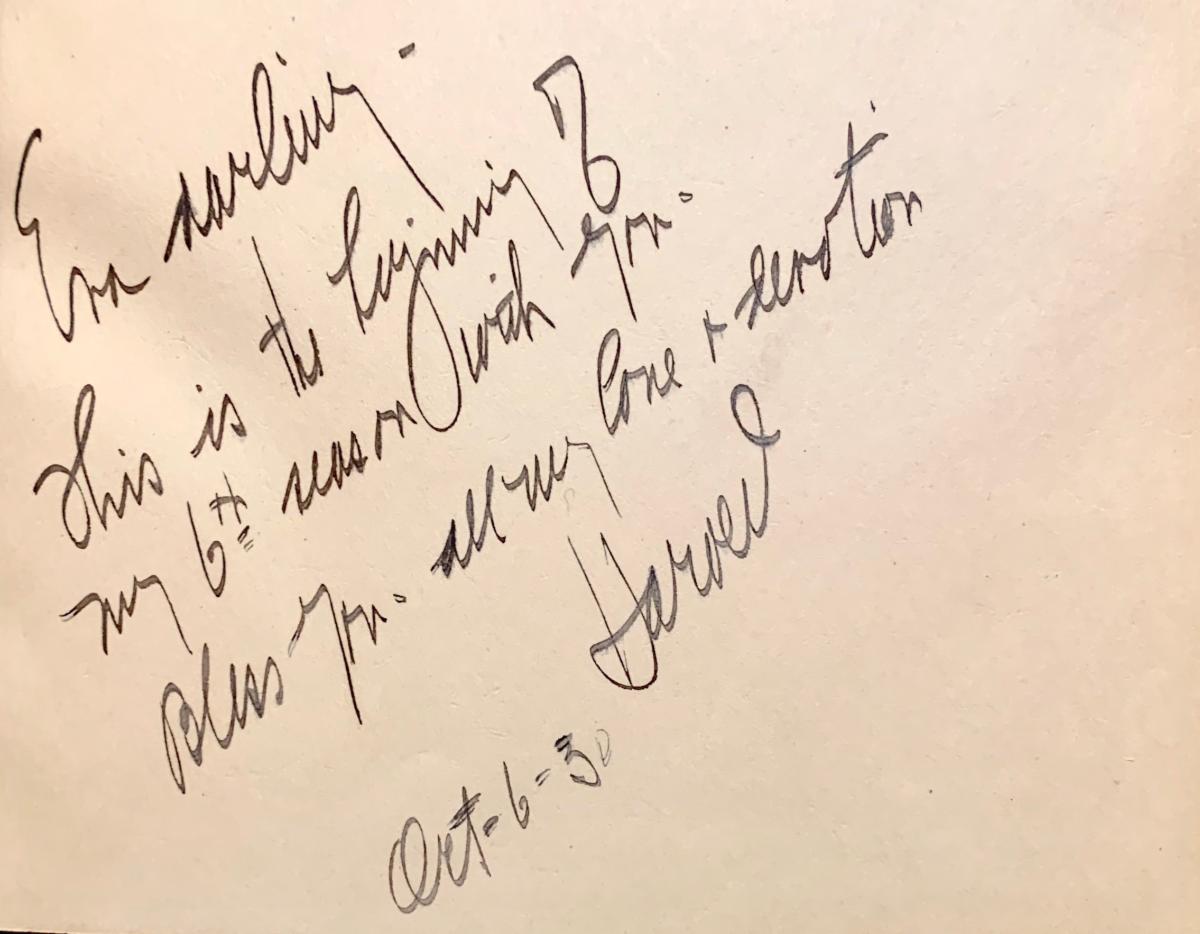 Eva darling -
This is the beginning of
my 6th season with you -
Bless you - all my love + devotion
Harold
Oct - 6 - 30